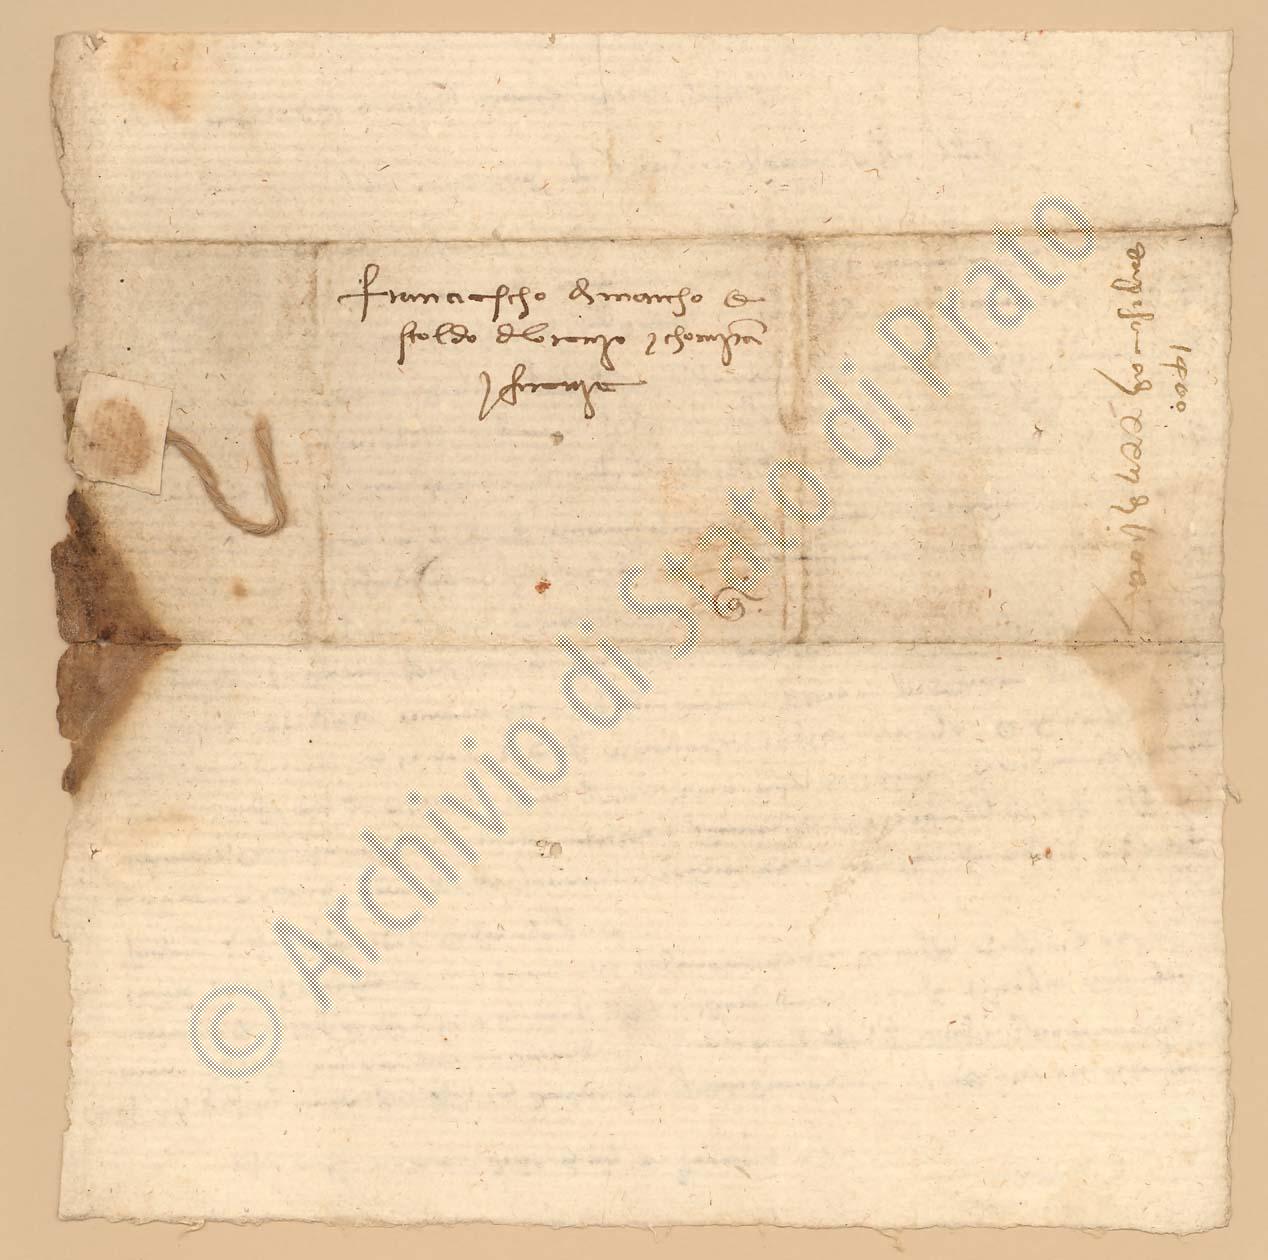 Franciescho di Marcho e
Stoldo di Lorenzo e chonpa
i Firenze
1400
da Pisa, a dì
di
© Archivio di Stato di Prato